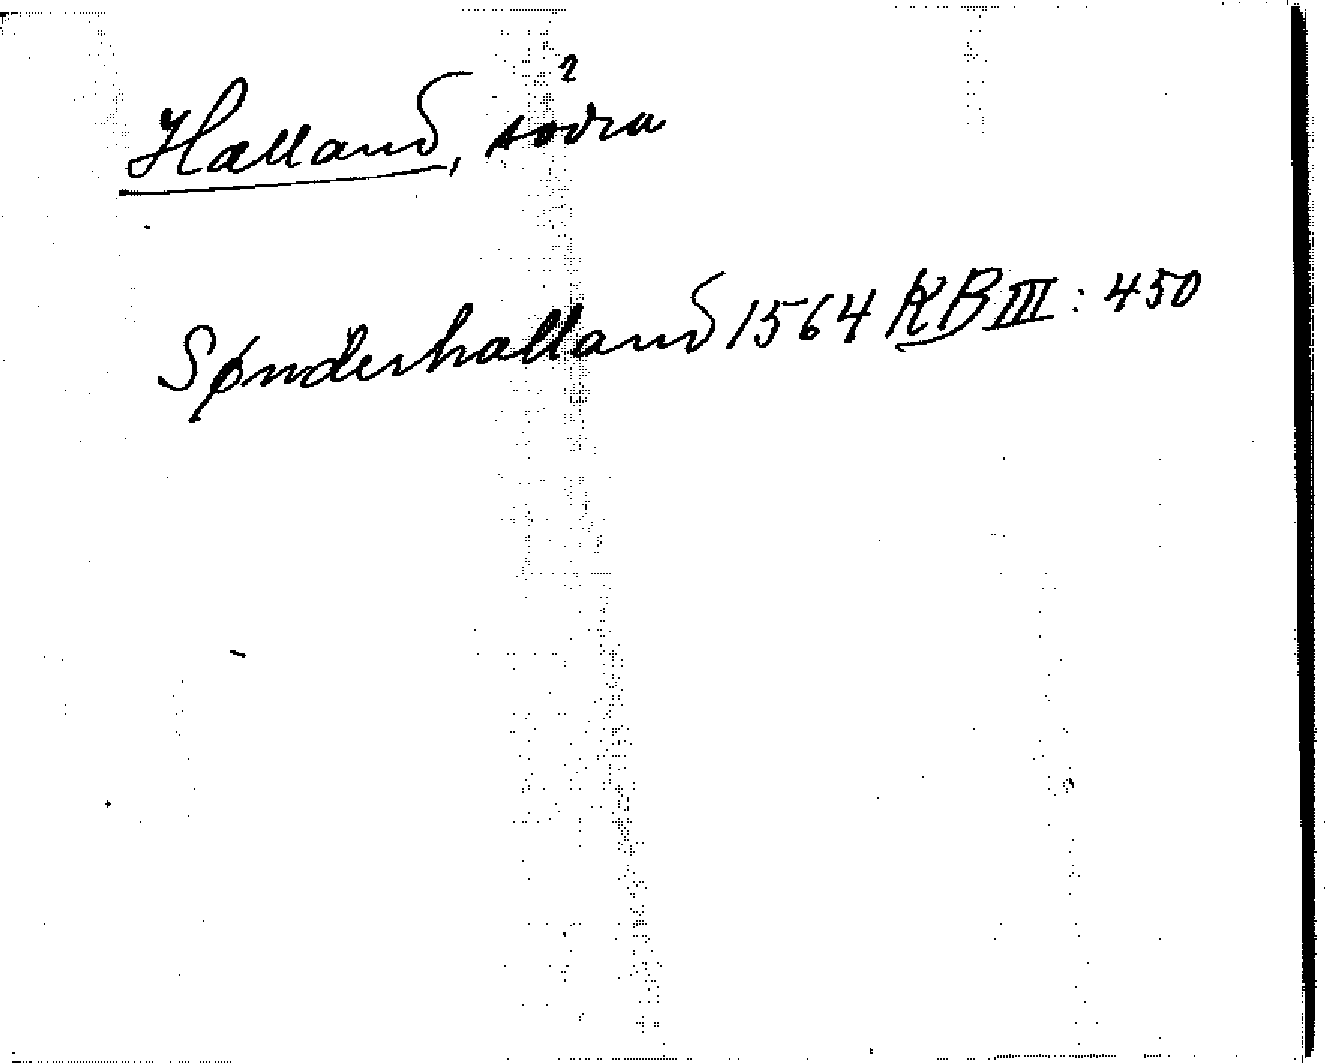 Halland, södra
Sønderhalland 1564 KB III: 450